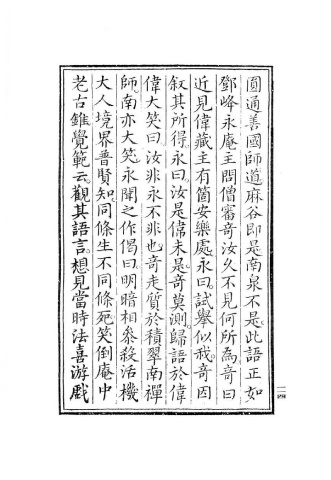 圓通善國師道麻谷即是南泉不是此語正如
鄧峰永庵主問僧審奇汝久不見何所為奇曰
近見偉藏主有箇安樂處永曰試舉似我奇因
敍其所得永曰汝是偉未是奇莫測歸語於偉
偉大笑曰汝非永不非也奇走質於積翠南禪
師南亦大笑永聞之作偈曰明暗相參殺活機
大人境界普賢知同條生不同條死笑倒庵中
老古錐覺範云觀其語言想見當時法喜游戲